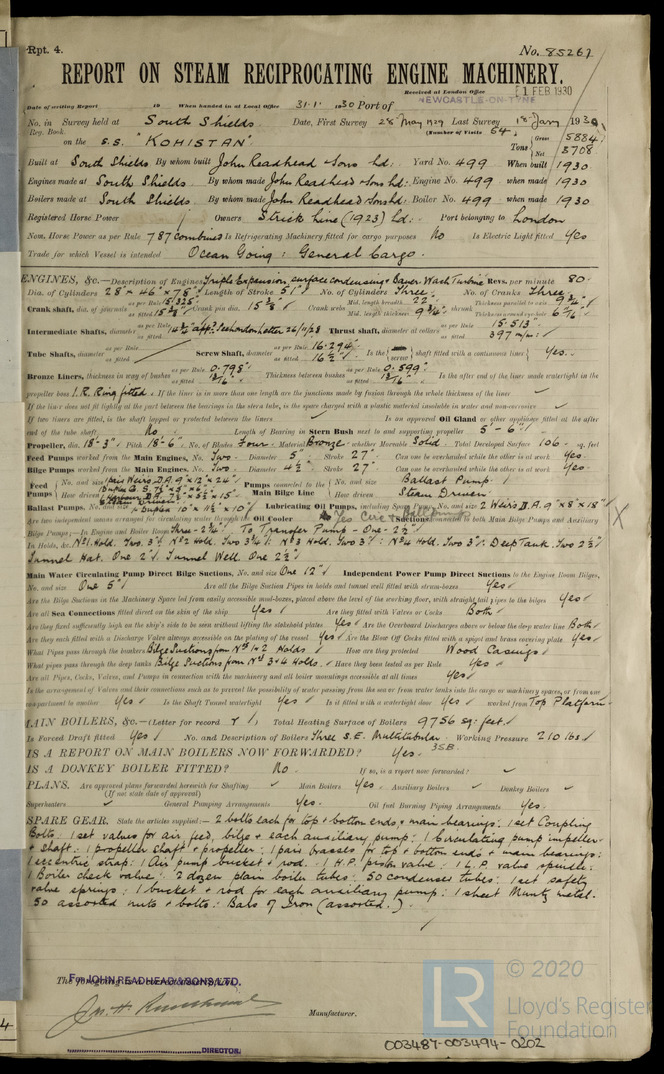 Rpt. 4. No. 85267
REPORT ON STEAM RECIPROCATING ENGINE MACHINERY.
Received at London Office 1 FEB 1930
Date of writing Report 19 When handed in at Local Office 31·1· 1930 Port of NEWCASTLE-ON-TYNE
No. in Survey held at South Shields. Date, First Survey 28 May 1929 Last Survey 18 Jany 1930
Reg. Book. (Number of Visits 64)
on the s.s. "KOHISTAN" Tons Gross 5884 Net 3708
Built at South Shields By whom built John Readhead & Sons Ld. Yard No. 499 When built 1930
Engines made at South Shields By whom made John Readhead & Sons Ld. Engine No. 499 when made 1930
Boilers made at South Shields. By whom made John Readhead & Sons Ld. Boiler No. 499 when made 1930
Registered Horse Power Owners Strick Line (1923) Ld. Port belonging to London
Nom. Horse Power as per Rule 787 combined Is Refrigerating Machinery fitted for cargo purposes No Is Electric Light fitted Yes
Trade for which Vessel is intended Ocean Going: General Cargo.
ENGINES, &c.—Description of Engines Triple Expansion, surface condensing & Bauer Wach Turbine Revs. per minute 80
Dia. of Cylinders 28" × 46" × 78" Length of Stroke 51" No. of Cylinders Three No. of Cranks Three
Crank shaft, dia. of journals as per Rule 15.325" as fitted 15 3/8" Crank pin dia. 15 3/8" Crank webs Mid. length breadth 22" Mid. length thickness 9 3/4" shrunk Thickness parallel to axis 9 3/4" Thickness around eye-hole
Intermediate Shafts, diameter as per Rule as fitted Thrust shaft, diameter at collars as per Rule 15.513" as fitted 397 m/m
Tube Shafts, diameter as per Rule as fitted Screw Shaft, diameter as per Rule 16.294" as fitted 16 1/2" Is the screw shaft fitted with a continuous liner Yes.
Bronze Liners, thickness in way of bushes as per Rule 0.798" as fitted 13/16" Thickness between bushes as per Rule 0.599" as fitted Is the after end of the liner made watertight in the
propeller boss I.R. Ring fitted. If the liner is in more than one length are the junctions made by fusion through the whole thickness of the liner
If the liner does not fit tightly at the part between the bearings in the stern tube, is the space charged with a plastic material insoluble in water and non-corrosive
If two liners are fitted, is the shaft lapped or protected between the liners Is an approved Oil Gland or other appliance fitted at the after
end of the tube shaft No Length of Bearing in Stern Bush next to and supporting propeller 5'-6"
Propeller, dia. 18'-3" Pitch 18'-6" No. of Blades Four Material Bronze whether Moveable Solid Total Developed Surface 106 sq. feet
Feed Pumps worked from the Main Engines, No. Two Diameter 5" Stroke 27" Can one be overhauled while the other is at work Yes.
Bilge Pumps worked from the Main Engines, No. Two Diameter 4 1/2" Stroke 27" Can one be overhauled while the other is at work Yes
Feed Pumps No. and size 1 pair Weirs D.A. 9" × 12" × 24" Pumps connected to the Main Bilge Line No. and size Ballast Pump. 1
How driven Steam Driven How driven Steam Driven
Ballast Pumps, No. and size Duplex 10" × 11 1/2" × 10" Lubricating Oil Pumps, including Spare Pump, No. and size 2 Weirs D.A. 9" × 8" × 18"
Are two independent means arranged for circulating water through the Oil Cooler Suctions, connected to both Main Bilge Pumps and Auxiliary
Bilge Pumps;—In Engine and Boiler Room Three - 2 3/4" To Transfer Pump - One 2 1/2"
In Holds, &c. No 1 Hold. Two 3". No 2 Hold. Two 3 1/4": No 3 Hold. Two 3": No 4 Hold. Two 3": Deep Tank. Two 2 1/2"
Tunnel Hat. One 2" Tunnel Well One 2 1/2"
Main Water Circulating Pump Direct Bilge Suctions, No. and size One 12" Independent Power Pump Direct Suctions to the Engine Room Bilges,
No. and size One 5" Are all the Bilge Suction Pipes in holds and tunnel well fitted with strum-boxes Yes
Are the Bilge Suctions in the Machinery Space led from easily accessible mud-boxes, placed above the level of the working floor, with straight tail pipes to the bilges Yes
Are all Sea Connections fitted direct on the skin of the ship Yes Are they fitted with Valves or Cocks Both
Are they fixed sufficiently high on the ship's side to be seen without lifting the stokehold plates Yes Are the Overboard Discharges above or below the deep water line Both
Are they each fitted with a Discharge Valve always accessible on the plating of the vessel Yes Are the Blow Off Cocks fitted with a spigot and brass covering plate Yes
What Pipes pass through the bunkers Bilge Suctions from Nos 1 & 2 Holds How are they protected Wood Casings
What pipes pass through the deep tanks Bilge Suctions from Nos 3 & 4 Holds. Have they been tested as per Rule Yes
Are all Pipes, Cocks, Valves, and Pumps in connection with the machinery and all boiler mountings accessible at all times Yes
Is the arrangement of Valves and their connections such as to prevent the possibility of water passing from the sea or from water tanks into the cargo or machinery spaces, or from one
compartment to another Yes Is the Shaft Tunnel watertight Yes Is it fitted with a watertight door Yes worked from Top Platform
MAIN BOILERS, &c.—(Letter for record r) Total Heating Surface of Boilers 9756 sq. feet.
Is Forced Draft fitted Yes No. and Description of Boilers Three S.E. Multitubular Working Pressure 210 lbs
IS A REPORT ON MAIN BOILERS NOW FORWARDED? Yes. 3SB.
IS A DONKEY BOILER FITTED? No. If so, is a report now forwarded?
PLANS. Are approved plans forwarded for Shafting Main Boilers Yes Auxiliary Boilers Donkey Boilers
(If not state date of approval)
Superheaters General Pumping Arrangements Yes. Oil fuel Burning Piping Arrangements Yes.
SPARE GEAR. State the articles supplied:— 2 bolts each for top & bottom ends & main bearings: 1 set Coupling
Bolts: 1 set valves for air feed, bilge & each auxiliary pump: 1 Circulating pump impeller
& shaft: 1 propeller shaft & propeller: 1 pair brasses for top & bottom ends & main bearings:
1 eccentric strap: 1 Air pump bucket & rod. 1 H.P. piston valve: 1 L.P. valve spindle:
1 Boiler check valve: 2 dozen plain boiler tubes: 50 condenser tubes: 1 set safety
valve springs: 1 bucket & rod for each auxiliary pump: 1 sheet Muntz metal.
50 assorted nuts & bolts: Bars of Iron (assorted.)
The foregoing is a correct description,
For JOHN READHEAD & SONS, LTD.
Manufacturer.
DIRECTOR.
LR © 2020
Lloyd's Register
Foundation
003487-003494-0202